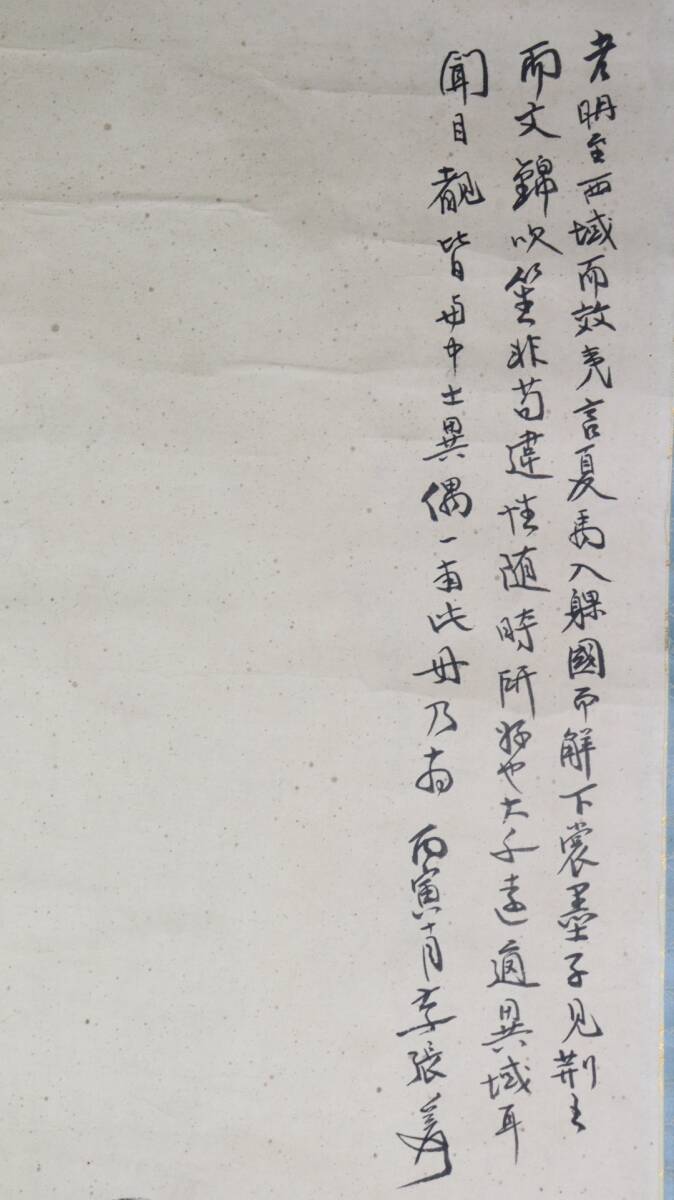 老明至西域而效夷言夏禹入躶國而解下裳墨子見荆王
而文錦吹笙非苟違性随時所好也大千遠適異域耳
聞目覩皆與中土異偶一為此毋乃
丙寅十月李張